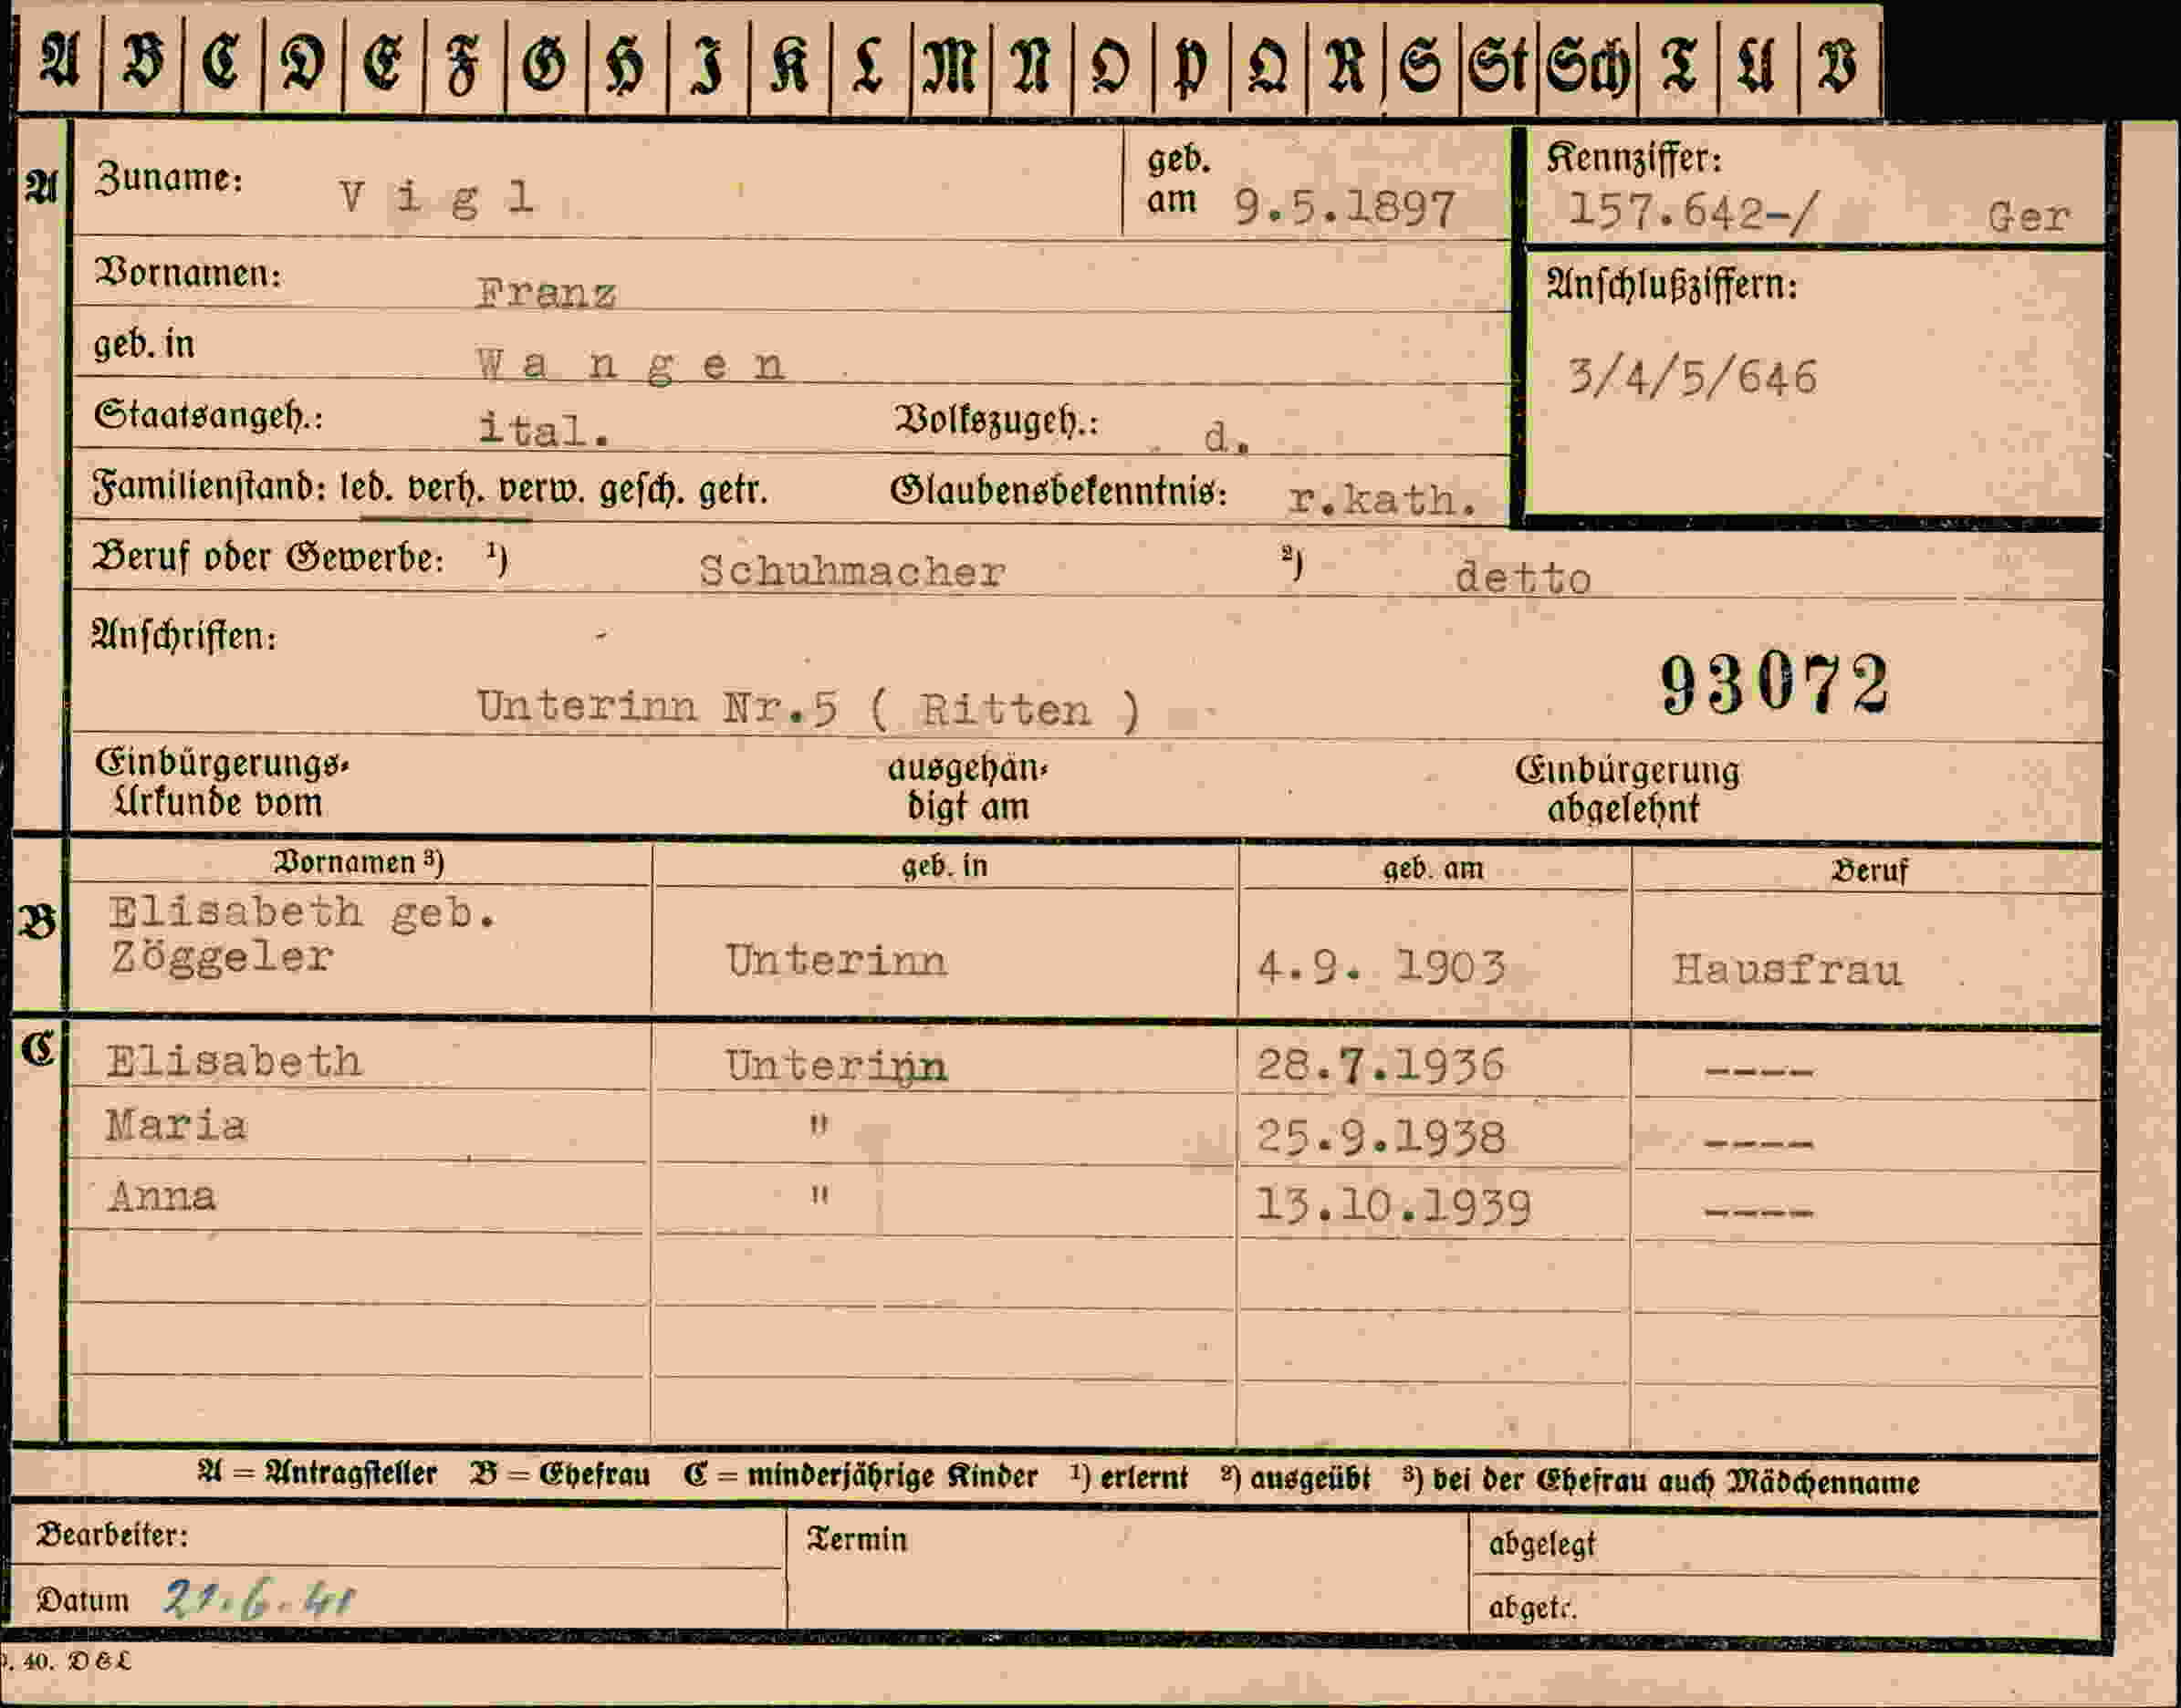 A B C D E F G H I K L M N O P Q R S St Sch T U V
A Zuname: Vigl geb. am 9.5.1897 Kennziffer: 157.642-/ Ger
Vornamen: Franz Anschlußziffern:
geb. in Wangen 3/4/5/646
Staatsangeh.: ital. Volkszugeh.: d.
Familienstand: led. verh. verw. gesch. getr. Glaubensbekenntnis: r.kath.
Beruf oder Gewerbe: ¹) Schuhmacher ²) detto
Anschriften:
93072
Unterinn Nr.5 ( Ritten )
Einbürgerungs- ausgehän- Einbürgerung
Urkunde vom digt am abgelehnt
Vornamen ³) geb. in geb. am Beruf
B Elisabeth geb.
Zöggeler Unterinn 4.9. 1903 Hausfrau
C Elisabeth Unterinn 28.7.1936 ----
Maria " 25.9.1938 ----
Anna " 13.10.1939 ----
A = Antragsteller B = Ehefrau C = minderjährige Kinder ¹) erlernt ²) ausgeübt ³) bei der Ehefrau auch Mädchenname
Bearbeiter: Termin abgelegt
Datum 21.6.41 abgetr.
. 40. D & L